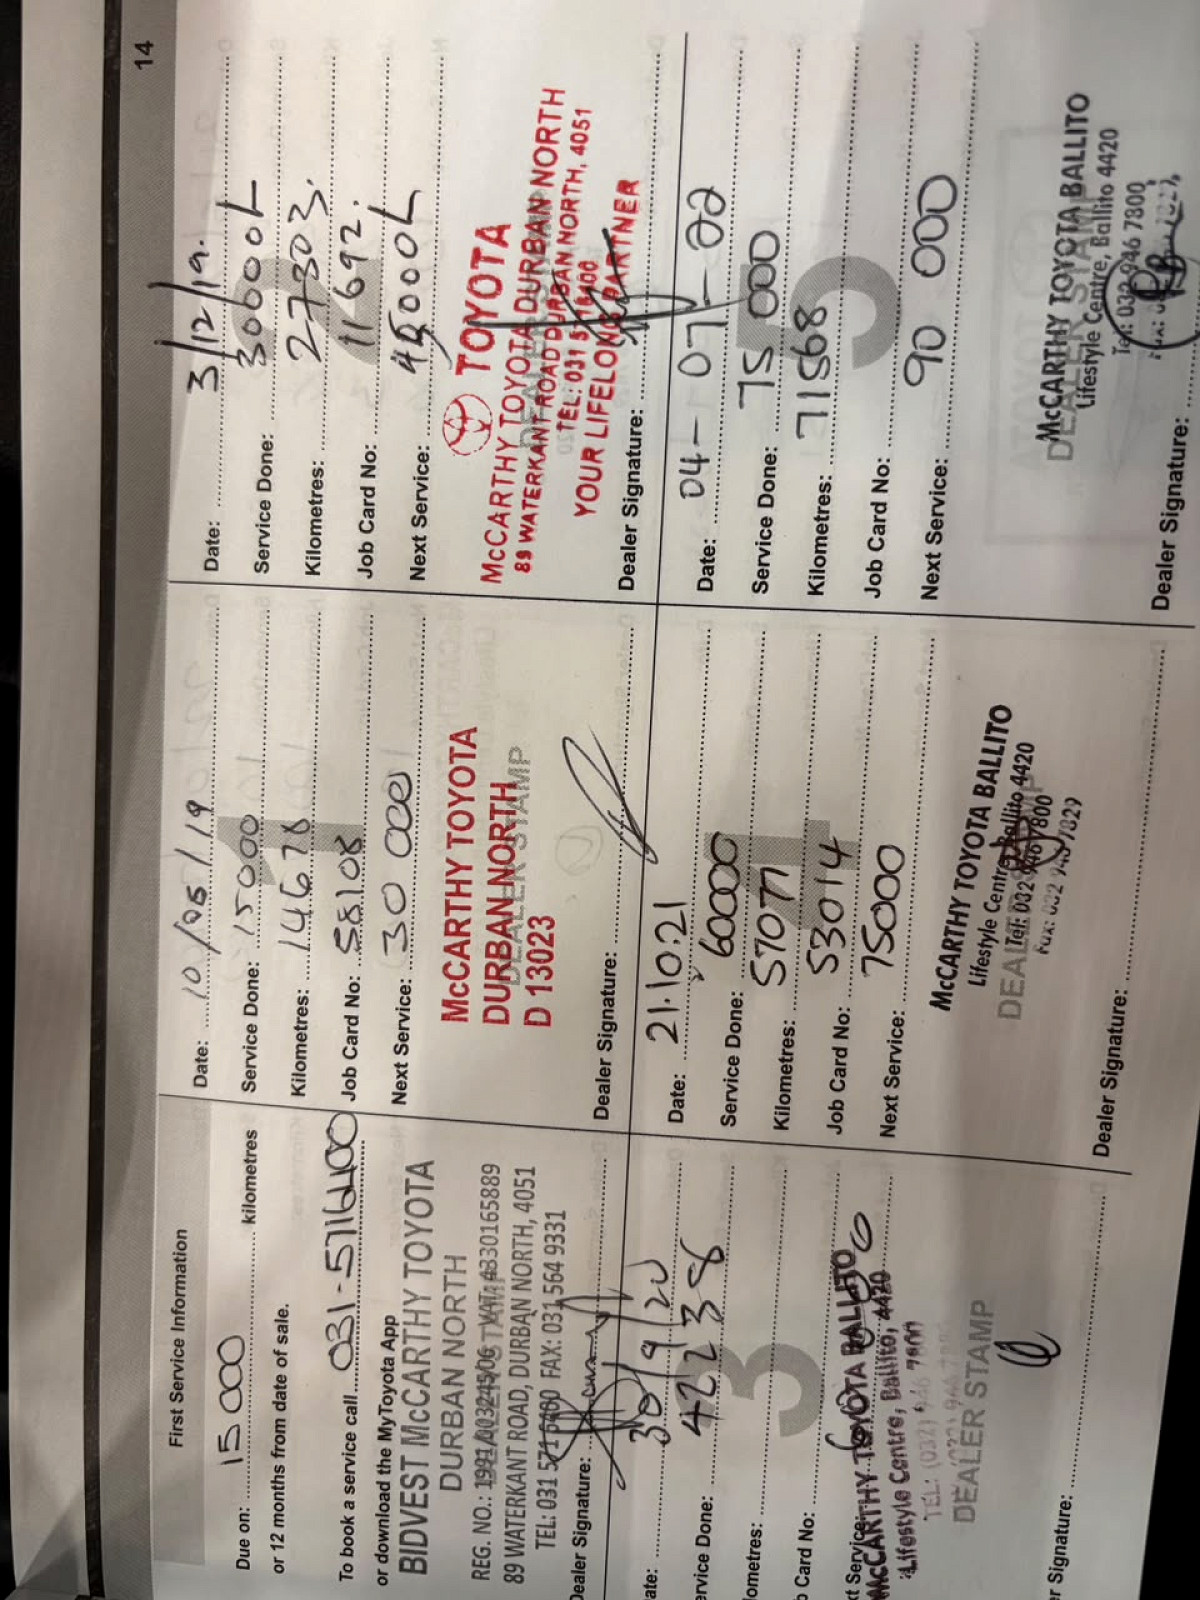 14
First Service Information
Due on: 15 000 kilometres
or 12 months from date of sale.
To book a service call 031-5716400
or download the MyToyota App
BIDVEST McCARTHY TOYOTA
DURBAN NORTH
REG. NO.: 1991/00324506 VAT: 4330165889
89 WATERKANT ROAD, DURBAN NORTH, 4051
TEL: 031 571 6400 FAX: 031 564 9331
Dealer Signature:
1
Date: 10/05/19
Service Done: 15000
Kilometres: 14678
Job Card No: 58108
Next Service: 30 000
DEALER STAMP
McCARTHY TOYOTA
DURBAN NORTH
D 13023
Dealer Signature:
2
Date: 3/12/19.
Service Done: 30000L
Kilometres: 27303.
Job Card No: 11692.
Next Service: 45000L
TOYOTA
McCARTHY TOYOTA DURBAN NORTH
89 WATERKANT ROAD DURBAN NORTH, 4051
TEL: 031 5716400
YOUR LIFELONG PARTNER
DEALER STAMP
Dealer Signature:
3
ate: 30/9/20
ervice Done: 42238
lometres:
Card No:
xt Service:
McCARTHY TOYOTA BALLITO
Lifestyle Centre, Ballito, 4420
TEL: (032) 946 7800
DEALER STAMP
er Signature:
4
Date: 21.10.21
Service Done: 60000
Kilometres: 57077
Job Card No: 53014
Next Service: 75000
McCARTHY TOYOTA BALLITO
Lifestyle Centre, Ballito 4420
Tel: 032 946 7800
Fax: 032 946 7829
DEALER STAMP
Dealer Signature:
5
Date: 04-07-22
Service Done: 75 000
Kilometres: 71568
Job Card No:
Next Service: 90 000
McCARTHY TOYOTA BALLITO
DEALER STAMP
Lifestyle Centre, Ballito 4420
Tel: 032 946 7800
Dealer Signature: